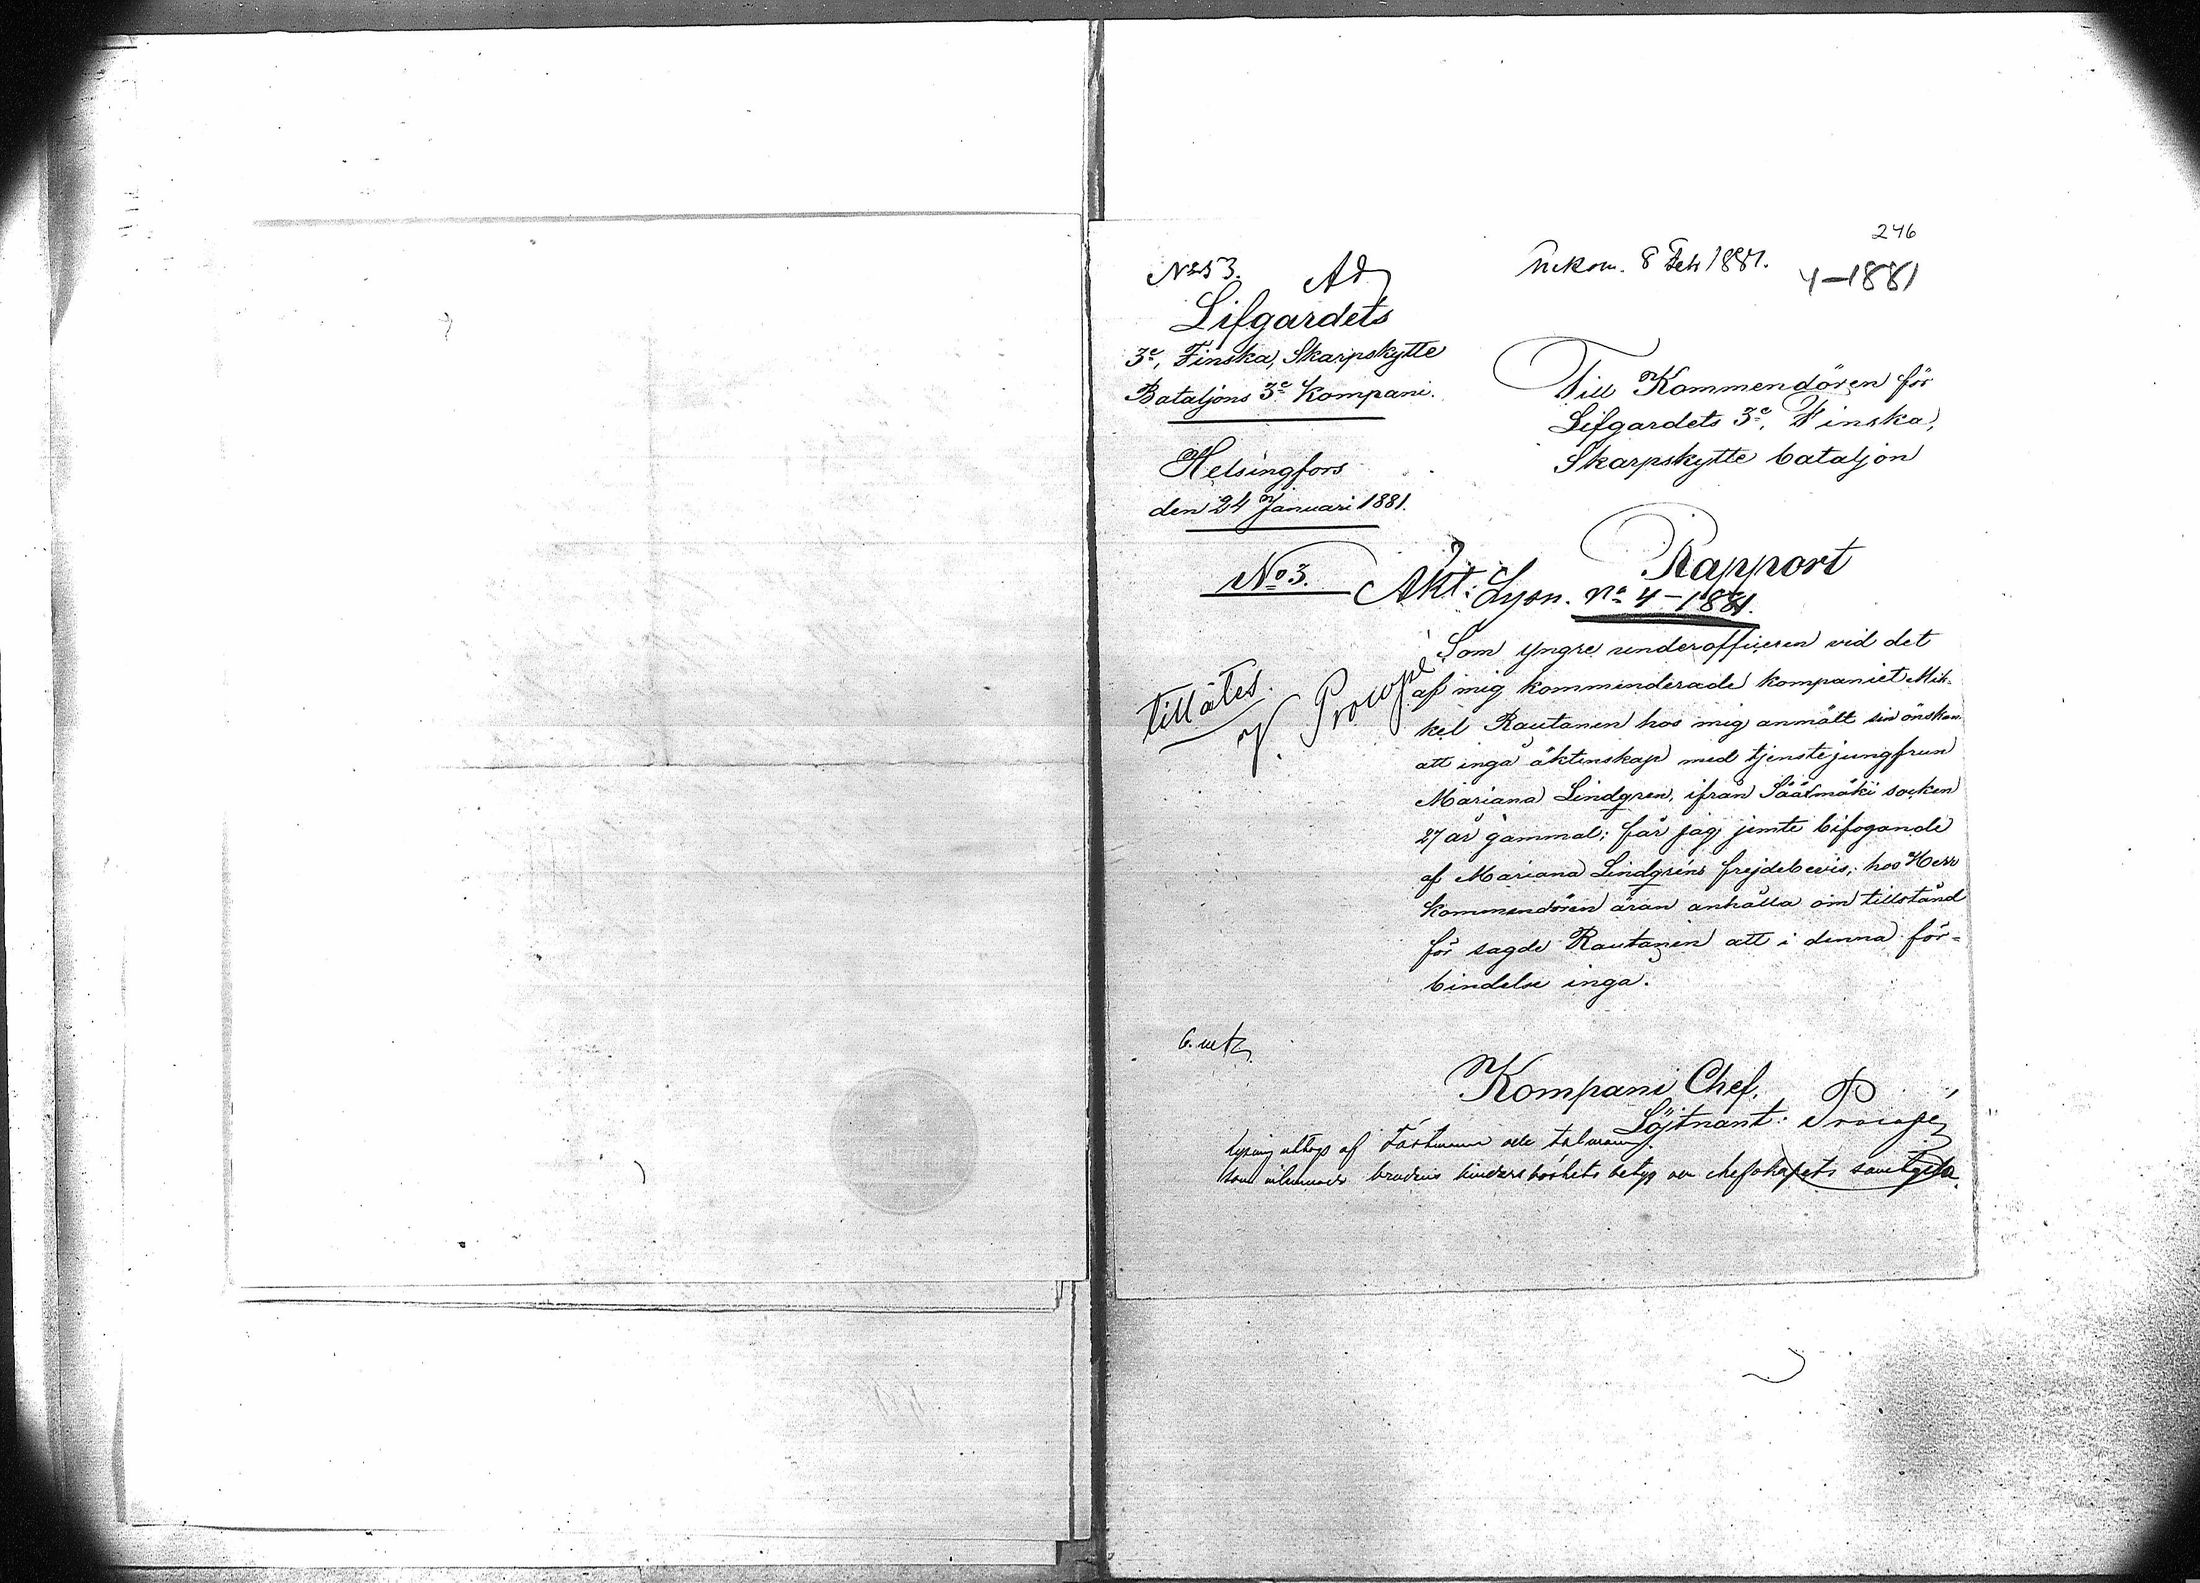 246
No 53. Ad
Inkom. 8 Feb 1881.
4-1881
Lifgardets
3e, Finska, Skarpskytte
Bataljons 3e Kompani.
Helsingfors
den 24 Januari 1881.
No 3.
Till Kommendören för
Lifgardets 3e, Finska,
Skarpskytte bataljon
Rapport
Akt: Lysn. No 4-1881.
tillåtes.
V. Procopé
Som yngre underofficeren vid det
af mig kommenderade kompaniet Mik-
kel Rautanen hos mig anmält sin önskan
att ingå äktenskap med tjenstejungfrun
Mariana Lindgren, ifrån Sääksmäki socken
27 år gammal; får jag jemte bifogande
af Mariana Lindgréns frejdebevis, hos Herr
Kommendören äran anhålla om tillstånd
för sagde Rautanen att i denna för-
bindelse ingå.
Kompani Chef,
Löjtnant: Procopé
lysning uttogs af
som brudens hinderslöshets betyg